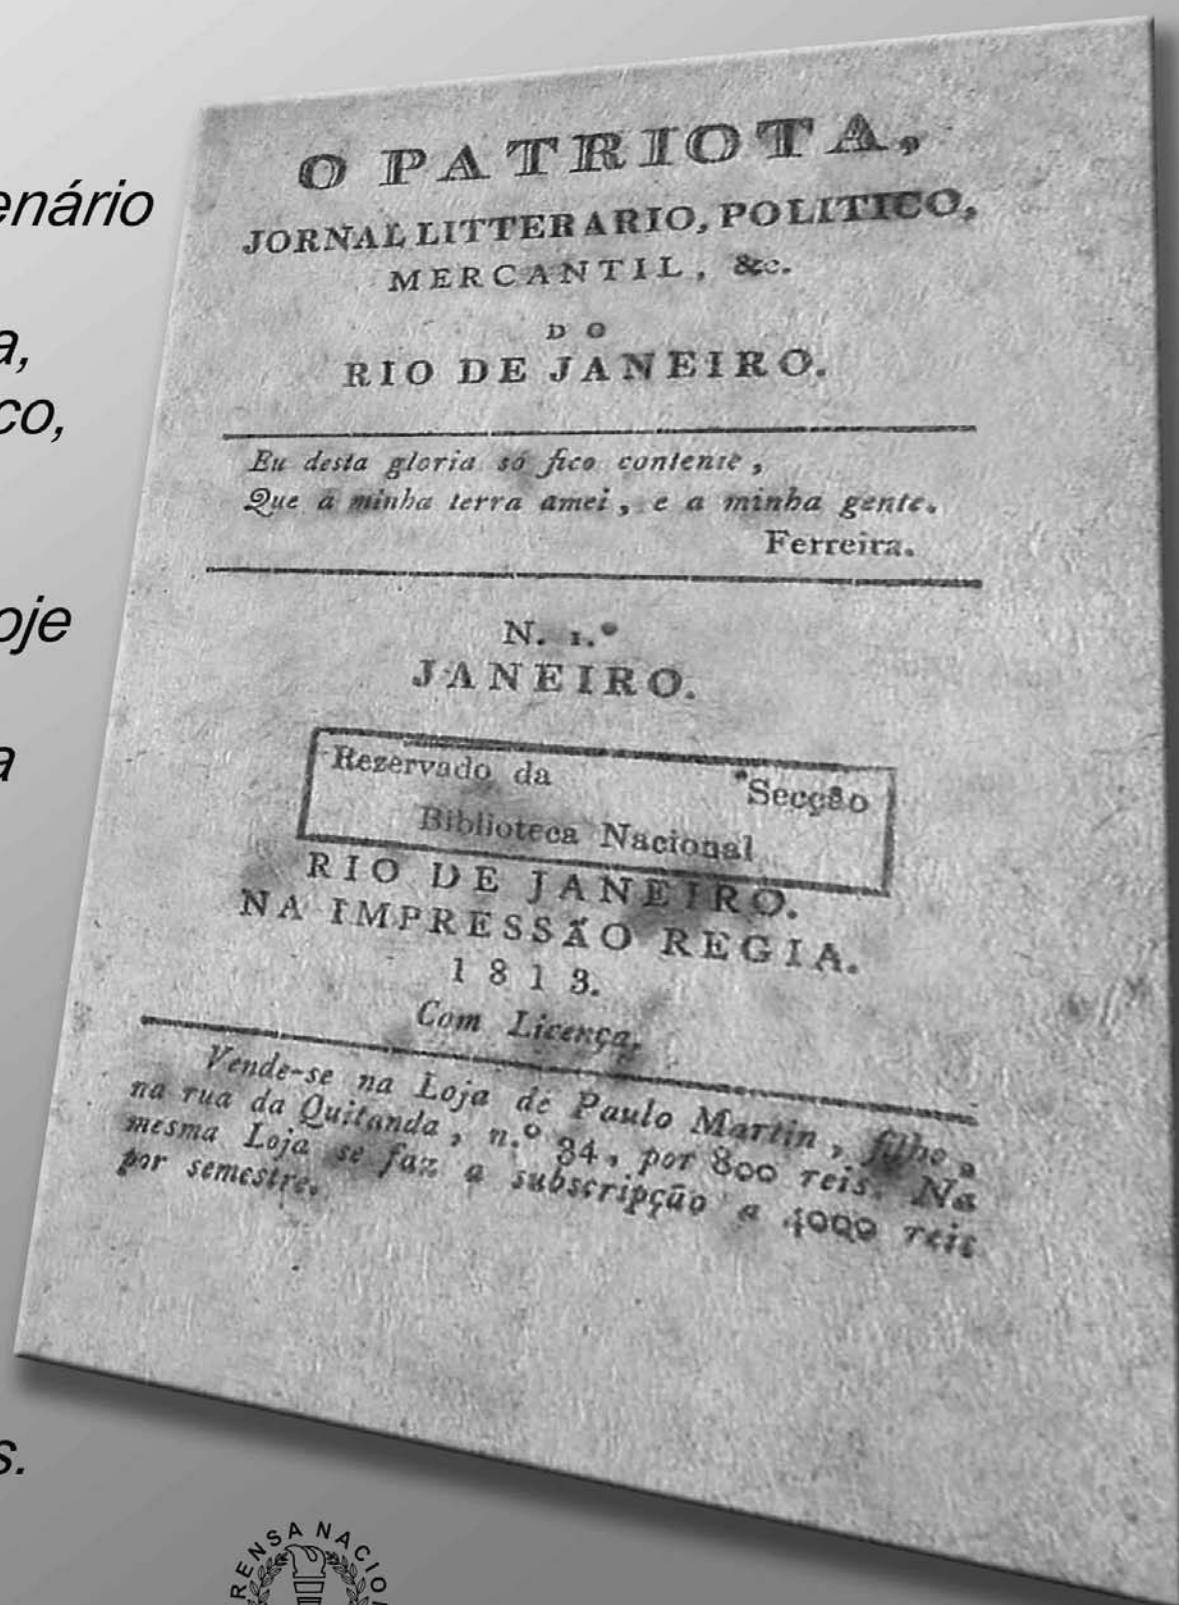 enário
a,
co,
oje
a
s.
O PATRIOTA,
JORNAL LITTERARIO, POLITICO,
MERCANTIL, &c.
DO
RIO DE JANEIRO.
Eu desta gloria só fico contente,
Que á minha terra amei, e a minha gente.
Ferreira.
N. 1.º
JANEIRO.
Rezervado da Secção
Biblioteca Nacional
RIO DE JANEIRO.
NA IMPRESSÃO REGIA.
1813.
Com Licença.
Vende-se na Loja de Paulo Martin, filho,
na rua da Quitanda, n.º 34, por 800 reis. Na
mesma Loja se faz a subscripção a 4000 reis
por semestre.
RENSA NACIO